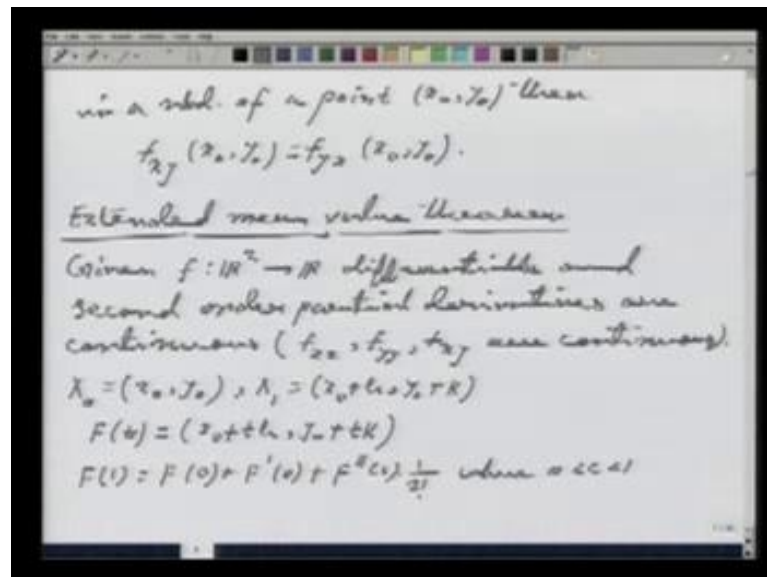 in a nbd. of a point (x₀, y₀) then
f_xy (x₀, y₀) = f_yx (x₀, y₀).
Extended mean value theorem
Given f : ℝ² → ℝ differentiable and
second order partial derivatives are
continuous (f_xx, f_yy, f_xy are continuous).
X₀ = (x₀, y₀), X₁ = (x₀+h, y₀+k)
F(t) = (x₀+th, y₀+tk)
F(1) = F(0) + F'(0) + F''(c) 1/2! where 0<c<1